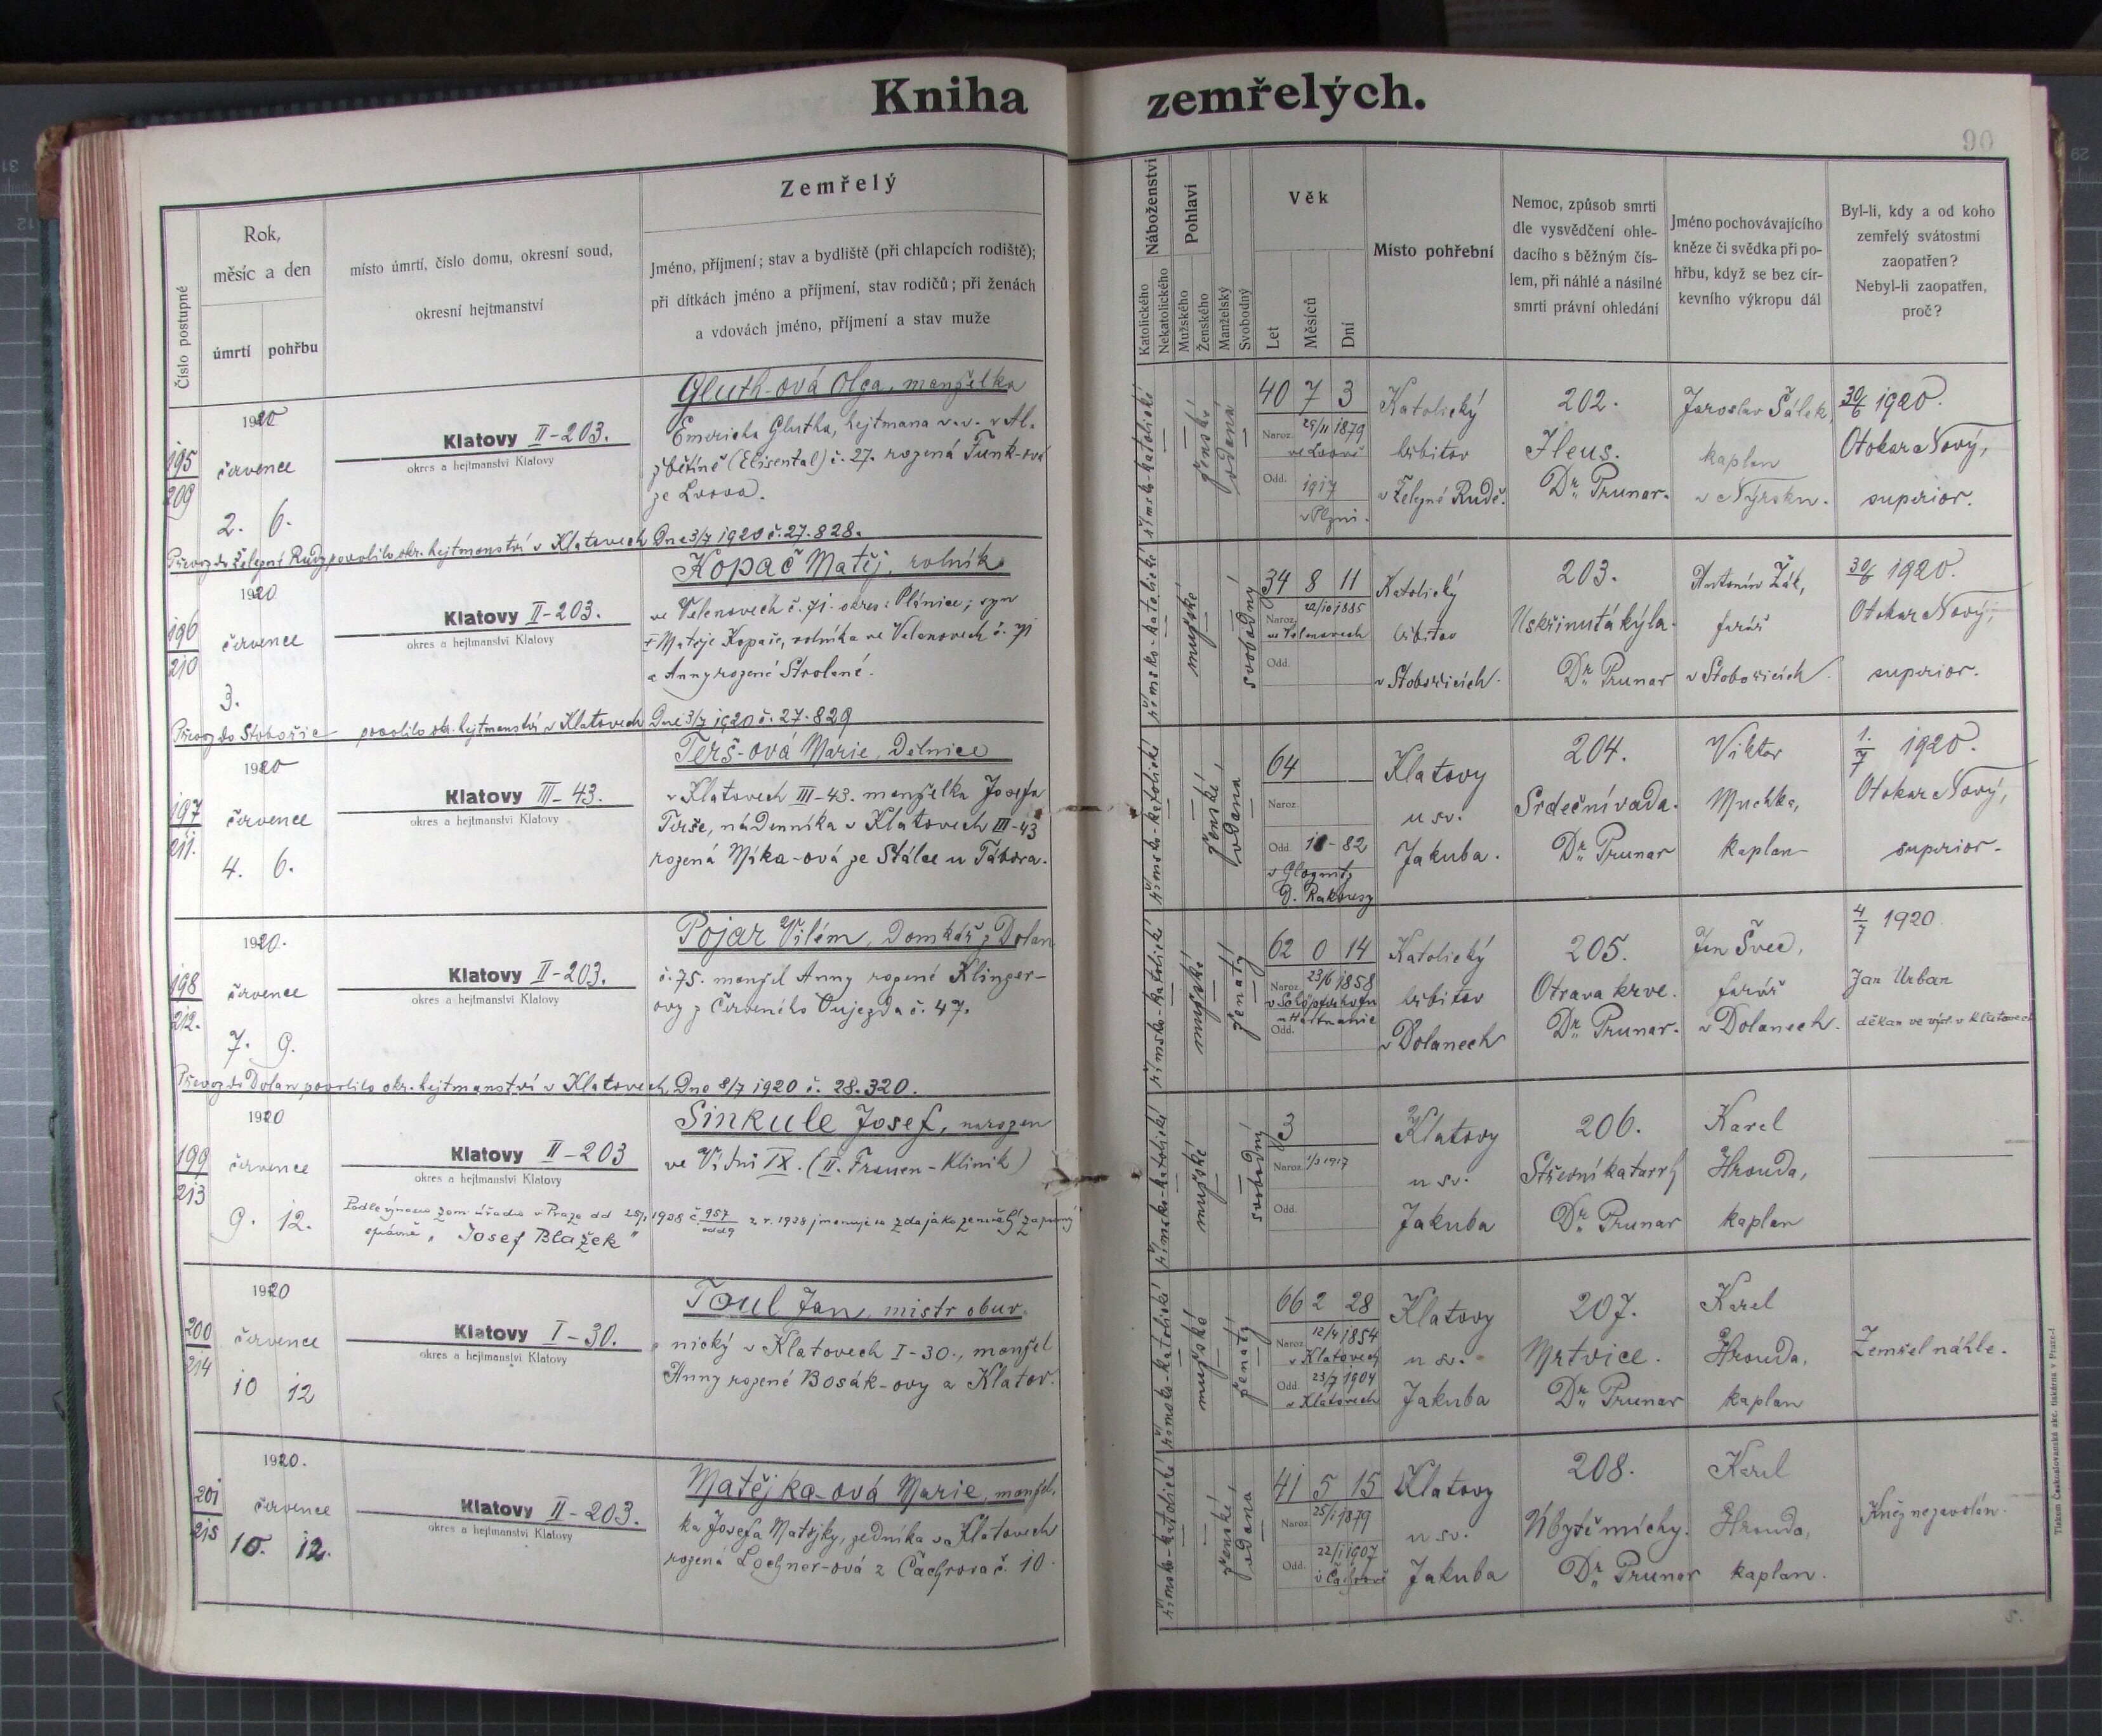 Kniha zemřelých.
90
Číslo postupné
Rok,
měsíc a den
úmrtí
pohřbu
místo úmrtí, číslo domu, okresní soud,
okresní hejtmanství
Zemřelý
Jméno, příjmení; stav a bydliště (při chlapcích rodiště);
při dítkách jméno a příjmení, stav rodičů; při ženách
a vdovách jméno, příjmení a stav muže
Náboženství
Katolického
Nekatolického
Pohlaví
Mužského
Ženského
Manželský
Svobodný
Věk
Let
Měsíců
Dní
Místo pohřební
Nemoc, způsob smrti
dle vysvědčení ohle-
dacího s běžným čís-
lem, při náhlé a násilné
smrti právní ohledání
Jméno pochovávajícího
kněze či svědka při po-
hřbu, když se bez cír-
kevního výkropu dál
Byl-li, kdy a od koho
zemřelý svátostmi
zaopatřen?
Nebyl-li zaopatřen,
proč?
195
209
1920
července
2. 6.
Klatovy II-203.
okres a hejtmanství Klatovy
Gluth-ová Olga, manželka
Emericha Glutha, hejtmana v. v. v Al-
žbětíně (Elisental) č. 27. rozená Funk-ová
ze Lvova.
Převoz do Železné Rudy povolilo okr. hejtmanství v Klatovech Dne 3/7 1920 č. 27.828.
římsko-katolické
ženské
vdaná
40 7 3
Naroz. 29/11 1879
ve Lvově
Odd. 1917
v Plzni.
Katolický
hřbitov
v Železné Rudě.
202.
Ileus.
Dr. Prunar.
Jaroslav Šálek,
kaplan
v Nýrsku.
30/6 1920.
Otokar Nový,
superior.
196
210
1920
července
3.
Klatovy II-203.
okres a hejtmanství Klatovy
Kopač Matěj, rolník
ve Velenovech č. 71. okres: Plánice; syn
† Matěje Kopače, rolníka ve Velenovech č. 71
a Anny rozené Strolené.
Převoz do Stobořic povolilo okr. hejtmanství v Klatovech Dne 3/7 1920 č. 27.829
římsko-katolické
mužské
svobodný
34 8 11
Naroz. 22/10 1885
ve Velenovech
Odd.
Katolický
hřbitov
v Stobořicích.
203.
Uskřinutá kýla.
Dr. Prunar
Antonín Žák,
farář
v Stobořicích.
30/6 1920.
Otokar Nový,
superior.
197
211.
1920
července
4. 6.
Klatovy III-43.
okres a hejtmanství Klatovy
Terš-ová Marie, dělnice
v Klatovech III-43. manželka Josefa
Terše, nádenníka v Klatovech III-43
rozená Míka-ová ze Stálce u Tábora.
římsko-katolické
ženské
vdaná
64
Naroz.
Odd. 18-82
v Glognitz
D. Rakousy
Klatovy
u sv.
Jakuba.
204.
Srdeční vada.
Dr. Prunar
Viktor
Muchka,
kaplan
1./7 1920.
Otokar Nový,
superior.
198
212.
1920.
července
7. 9.
Klatovy II-203.
okres a hejtmanství Klatovy
Pojar Vilém, Domkář z Dolan
č. 75. manžel Anny rozené Klinger-
ovy z Červeného Oujezda č. 47.
Převoz do Dolan povolilo okr. hejtmanství v Klatovech Dne 8/7 1920 č. 28.320.
římsko-katolické
mužské
ženatý
62 0 14
Naroz. 23/6 1858
u Hartmanic
Odd.
Katolický
hřbitov
v Dolanech
205.
Otrava krve.
Dr. Prunar.
Jan Švec,
farář
v Dolanech.
4/7 1920
Jan Urban
děkan ve výsl. v Klatovech
199
213
1920
července
9. 12.
Klatovy II-203
okres a hejtmanství Klatovy
Sinkule Josef, narozen
ve Vídni IX. (II. Frauen-Klinik)
Podle výnosu zem. úřadu v Praze dd 28/1 1938 č. 957 z r. 1938 jmenuje se zde jako zemřelý zapsaný
správně „Josef Blažek"
římsko-katolické
mužské
svobodný
3
Naroz. 1/3 1917
Odd.
Klatovy
u sv.
Jakuba
206.
Střevní katarrh
Dr. Prunar
Karel
Hrouda,
kaplan
200
214
1920
července
10 12
Klatovy I-30.
okres a hejtmanství Klatovy
Toul Jan, mistr obuv-
nický v Klatovech I-30., manžel
Anny rozené Bosák-ovy z Klatov.
římsko-katolické
mužské
ženatý
66 2 28
Naroz. 12/4 1854
v Klatovech
Odd. 23/7 1904
v Klatovech
Klatovy
u sv.
Jakuba
207.
Mrtvice.
Dr. Prunar
Karel
Hrouda,
kaplan
Zemřel náhle.
201
215
1920.
července
10. 12.
Klatovy II-203.
okres a hejtmanství Klatovy
Matějka-ová Marie, manžel-
ka Josefa Matějky, zedníka v Klatovech
rozená Lochner-ová z Čachrova č. 10.
římsko-katolické
ženské
vdaná
41 5 15
Naroz. 25/1 1879
Odd. 22/1 1907
v Čachrově
Klatovy
u sv.
Jakuba
208.
Úbytě míchy.
Dr. Prunar
Karel
Hrouda,
kaplan.
Kněz nezavolán.
Tiskem Českoslovanské akc. tiskárny v Praze-I